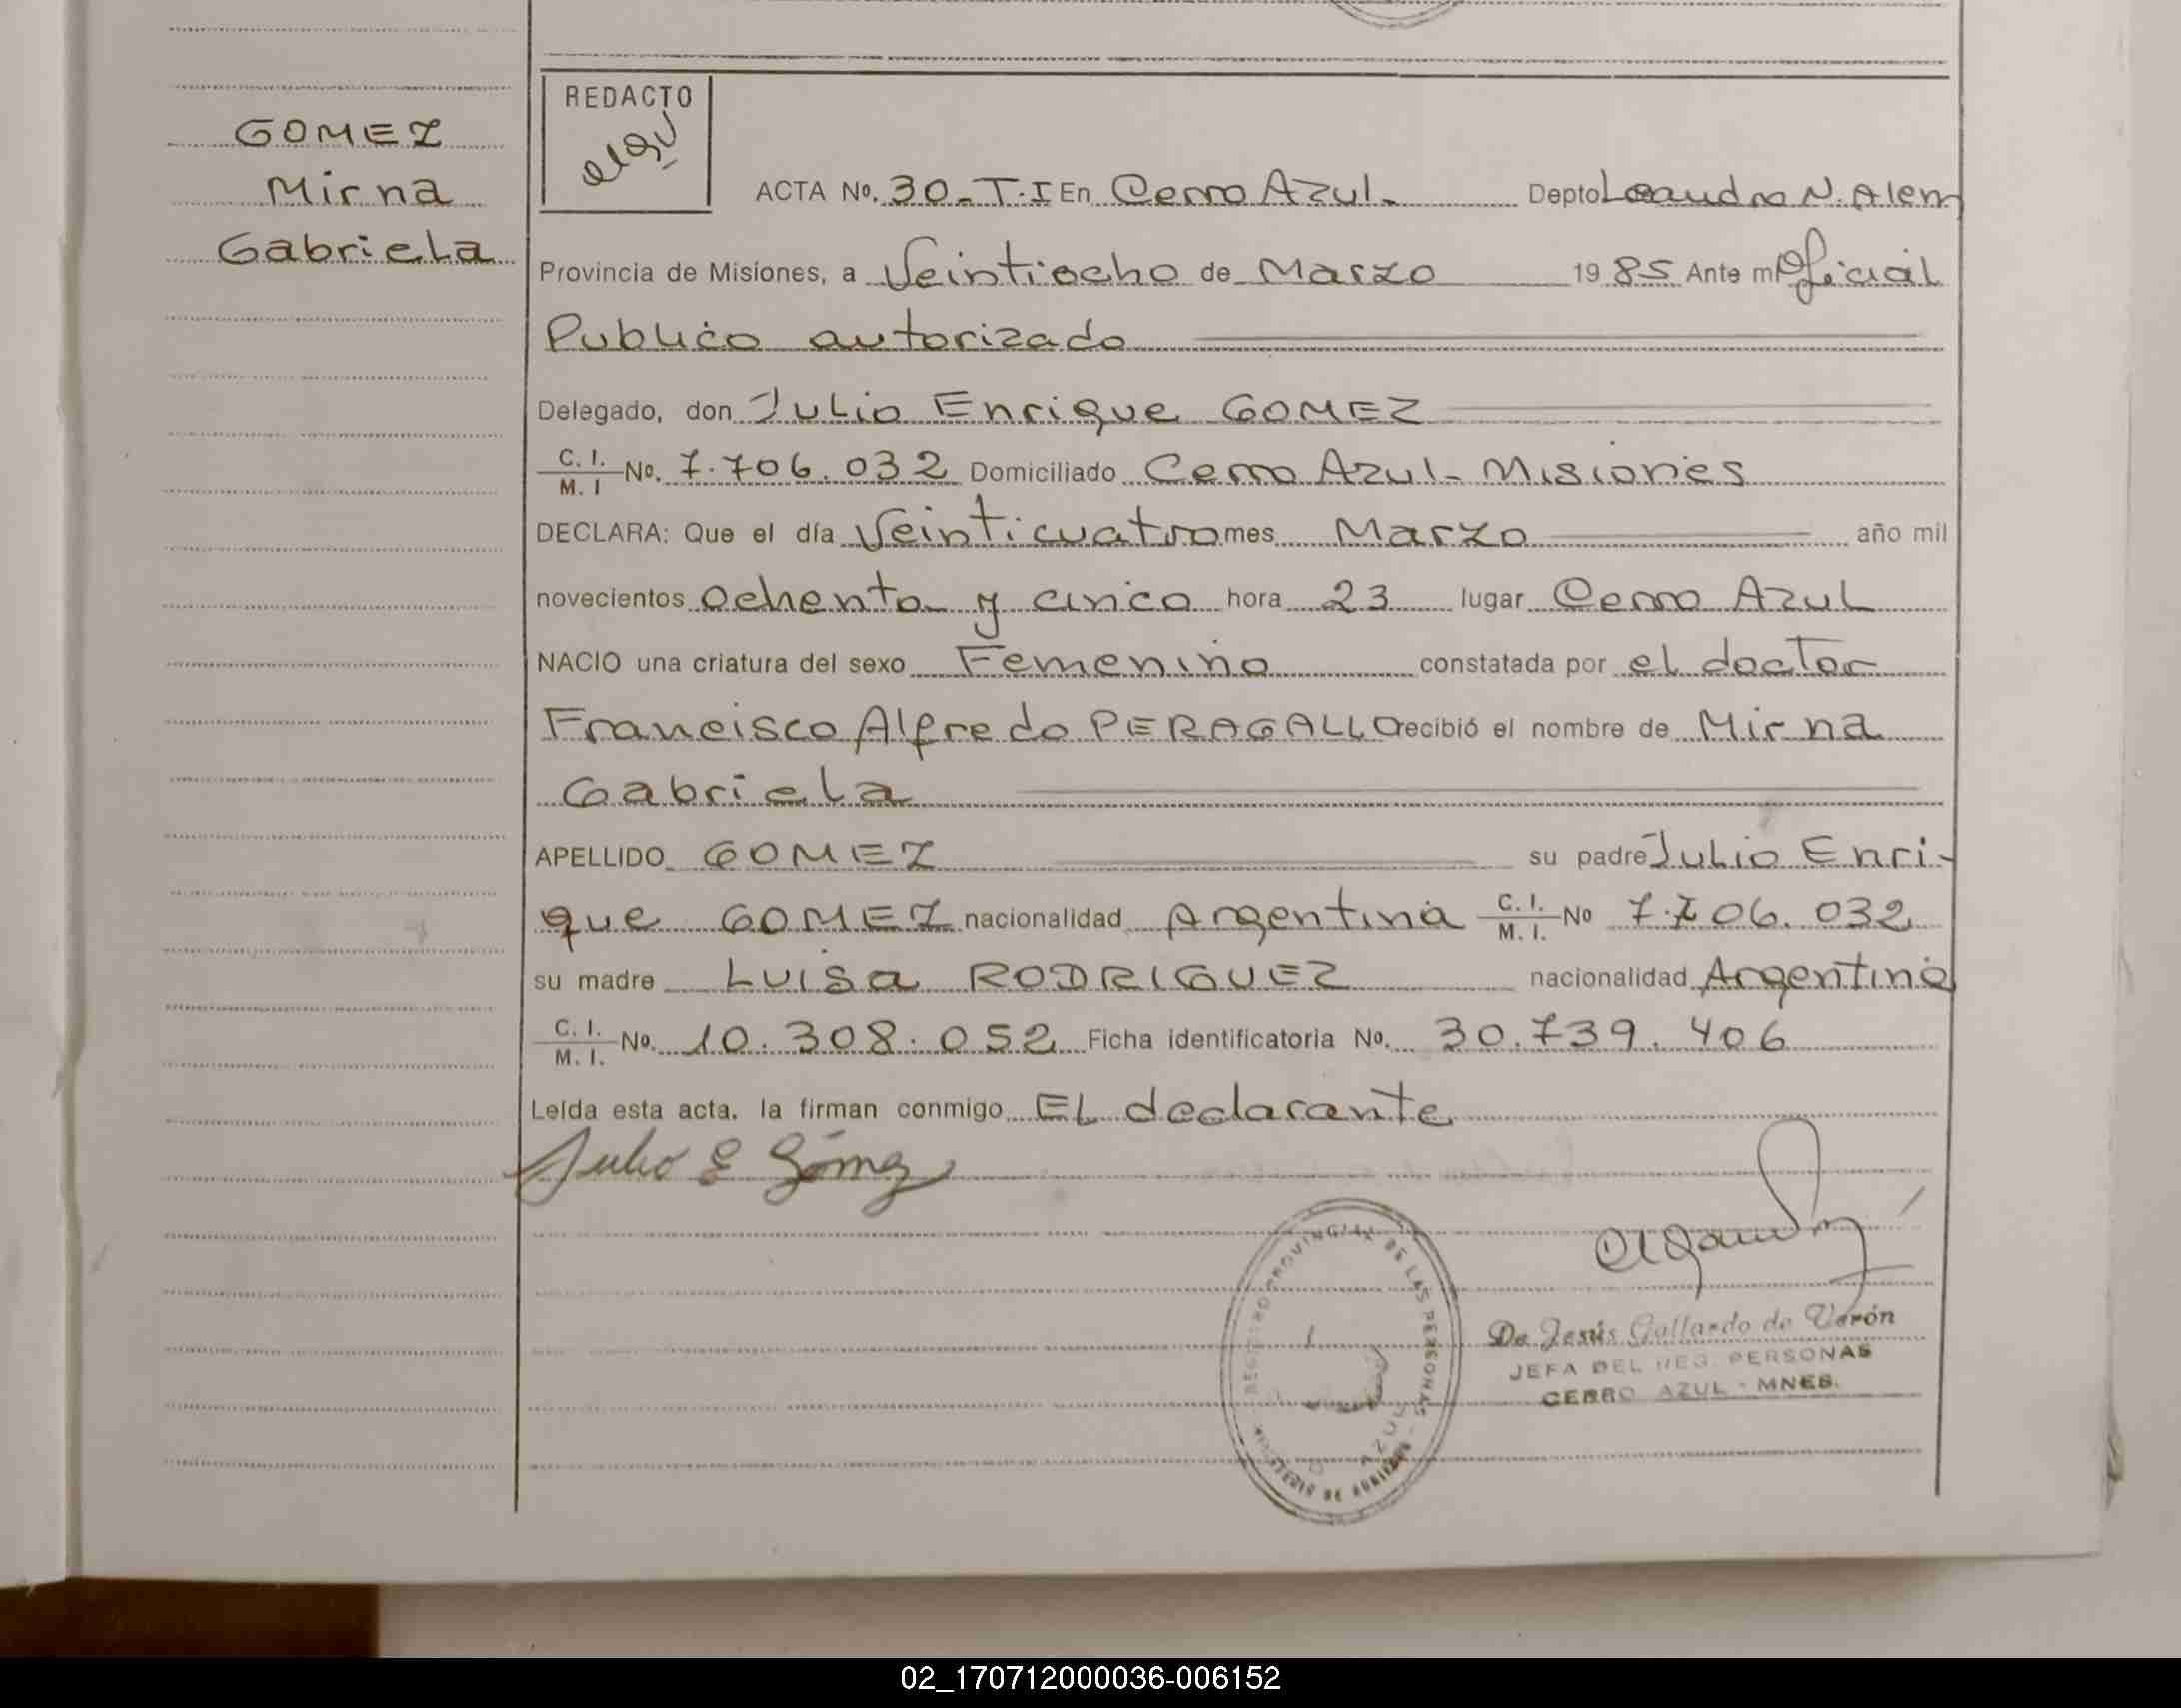 GOMEZ
Mirna
Gabriela
REDACTO
ACTA No. 30-T.I En Cerro Azul- Depto Leandro N. Alem
Provincia de Misiones, a Veintiocho de Marzo 1985 Ante mi Oficial
Publico autorizado
Delegado, don Julio Enrique GOMEZ
C. I. M. I No. 7.706.032 Domiciliado Cerro Azul- Misiones
DECLARA: Que el día Veinticuatro mes Marzo año mil
novecientos ochenta y cinco hora 23 lugar Cerro Azul
NACIO una criatura del sexo Femenino constatada por el doctor
Francisco Alfredo PERAGALLO recibió el nombre de Mirna
Gabriela
APELLIDO GOMEZ su padre Julio Enri-
que GOMEZ nacionalidad Argentina C. I. M. I. No 7.706.032
su madre Luisa RODRIGUEZ nacionalidad Argentina
C. I. M. I. No. 10.308.052 Ficha identificatoria No. 30.739.406
Leída esta acta. la firman conmigo El declarante
Julio E Gómez
REGISTRO PROVINCIAL DE LAS PERSONAS
MINISTERIO DE GOBIERNO
AZUL
De Jesús Gallardo de Verón
JEFA DEL REG. PERSONAS
CERRO AZUL - MNES.
02_170712000036-006152